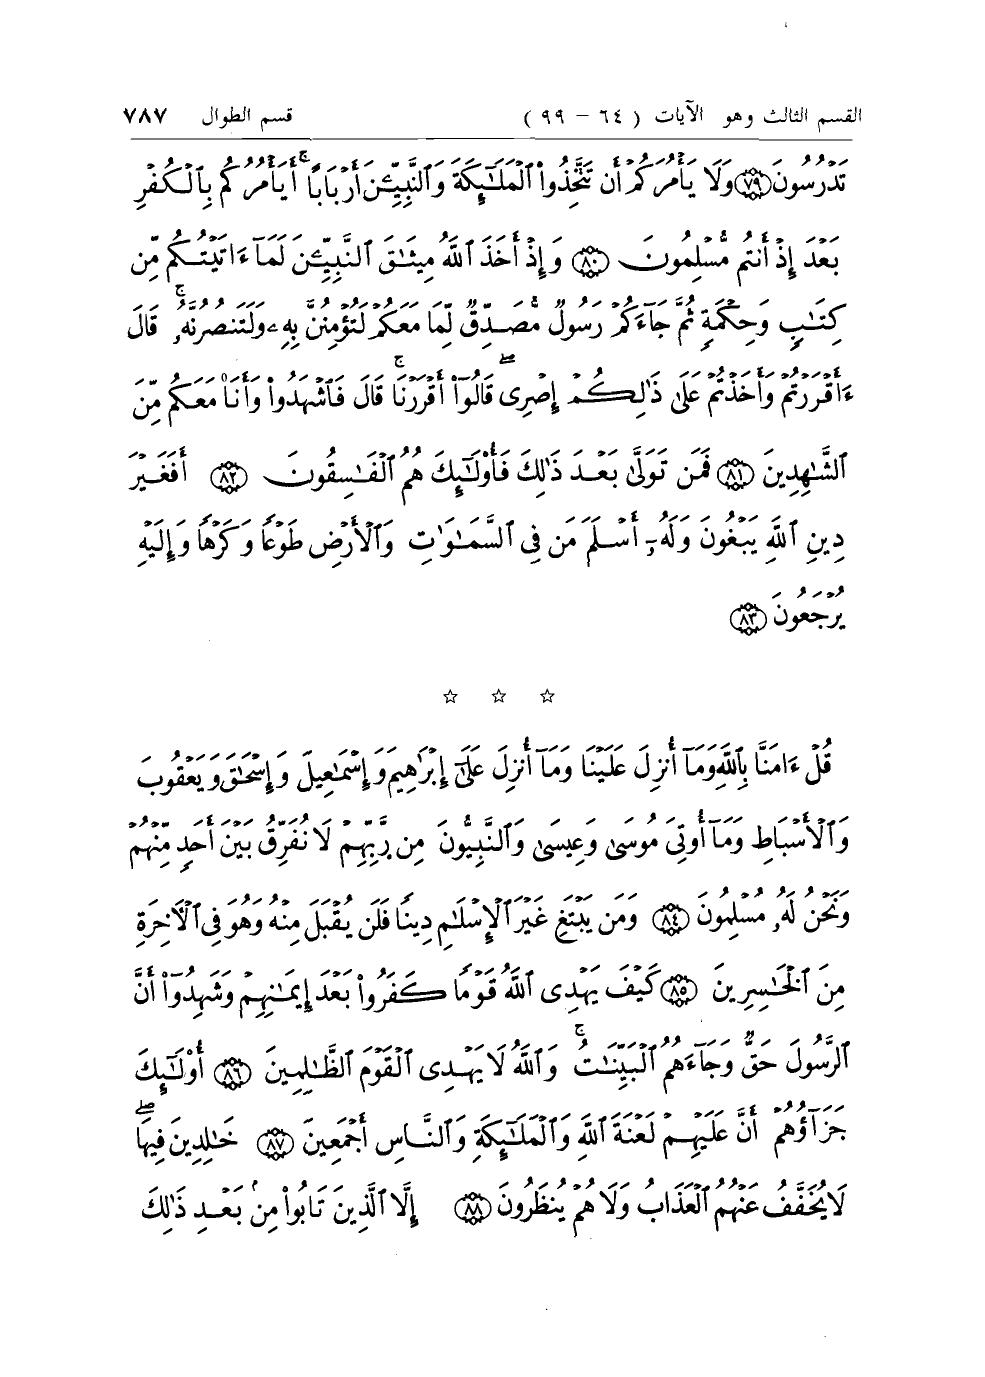 القسم الثالث وهو الآيات ( ٦٤ - ٩٩ ) قسم الطوال ٧٨٧
تَدْرُسُونَ ﴿٧٩﴾ وَلَا يَأْمُرَكُمْ أَن تَتَّخِذُوا۟ ٱلْمَلَٰٓئِكَةَ وَٱلنَّبِيِّـۧنَ أَرْبَابًا ۚ أَيَأْمُرُكُم بِٱلْكُفْرِ
بَعْدَ إِذْ أَنتُم مُّسْلِمُونَ ﴿٨٠﴾ وَإِذْ أَخَذَ ٱللَّهُ مِيثَٰقَ ٱلنَّبِيِّـۧنَ لَمَآ ءَاتَيْتُكُم مِّن
كِتَٰبٍ وَحِكْمَةٍ ثُمَّ جَآءَكُمْ رَسُولٌ مُّصَدِّقٌ لِّمَا مَعَكُمْ لَتُؤْمِنُنَّ بِهِۦ وَلَتَنصُرُنَّهُۥ ۚ قَالَ
ءَأَقْرَرْتُمْ وَأَخَذْتُمْ عَلَىٰ ذَٰلِكُمْ إِصْرِى ۖ قَالُوٓا۟ أَقْرَرْنَا ۚ قَالَ فَٱشْهَدُوا۟ وَأَنَا۠ مَعَكُم مِّنَ
ٱلشَّٰهِدِينَ ﴿٨١﴾ فَمَن تَوَلَّىٰ بَعْدَ ذَٰلِكَ فَأُو۟لَٰٓئِكَ هُمُ ٱلْفَٰسِقُونَ ﴿٨٢﴾ أَفَغَيْرَ
دِينِ ٱللَّهِ يَبْغُونَ وَلَهُۥٓ أَسْلَمَ مَن فِى ٱلسَّمَٰوَٰتِ وَٱلْأَرْضِ طَوْعًا وَكَرْهًا وَإِلَيْهِ
يُرْجَعُونَ ﴿٨٣﴾
☆ ☆ ☆
قُلْ ءَامَنَّا بِٱللَّهِ وَمَآ أُنزِلَ عَلَيْنَا وَمَآ أُنزِلَ عَلَىٰٓ إِبْرَٰهِيمَ وَإِسْمَٰعِيلَ وَإِسْحَٰقَ وَيَعْقُوبَ
وَٱلْأَسْبَاطِ وَمَآ أُوتِىَ مُوسَىٰ وَعِيسَىٰ وَٱلنَّبِيُّونَ مِن رَّبِّهِمْ لَا نُفَرِّقُ بَيْنَ أَحَدٍ مِّنْهُمْ
وَنَحْنُ لَهُۥ مُسْلِمُونَ ﴿٨٤﴾ وَمَن يَبْتَغِ غَيْرَ ٱلْإِسْلَٰمِ دِينًا فَلَن يُقْبَلَ مِنْهُ وَهُوَ فِى ٱلْءَاخِرَةِ
مِنَ ٱلْخَٰسِرِينَ ﴿٨٥﴾ كَيْفَ يَهْدِى ٱللَّهُ قَوْمًا كَفَرُوا۟ بَعْدَ إِيمَٰنِهِمْ وَشَهِدُوٓا۟ أَنَّ
ٱلرَّسُولَ حَقٌّ وَجَآءَهُمُ ٱلْبَيِّنَٰتُ ۚ وَٱللَّهُ لَا يَهْدِى ٱلْقَوْمَ ٱلظَّٰلِمِينَ ﴿٨٦﴾ أُو۟لَٰٓئِكَ
جَزَآؤُهُمْ أَنَّ عَلَيْهِمْ لَعْنَةَ ٱللَّهِ وَٱلْمَلَٰٓئِكَةِ وَٱلنَّاسِ أَجْمَعِينَ ﴿٨٧﴾ خَٰلِدِينَ فِيهَا ۖ
لَا يُخَفَّفُ عَنْهُمُ ٱلْعَذَابُ وَلَا هُمْ يُنظَرُونَ ﴿٨٨﴾ إِلَّا ٱلَّذِينَ تَابُوا۟ مِنۢ بَعْدِ ذَٰلِكَ